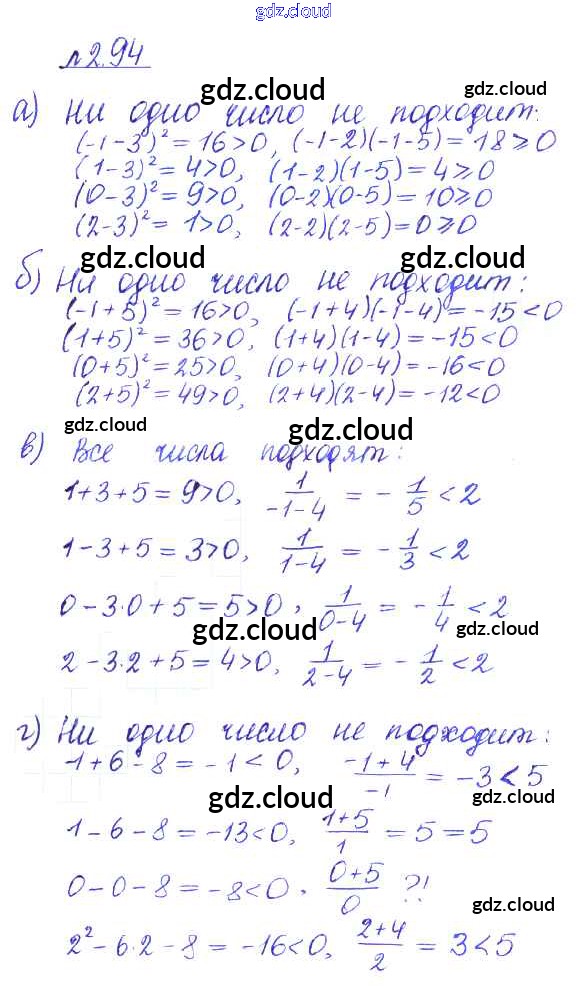 gdz.cloud
№2.94
gdz.cloud
а) Ни одно число не подходит:
gdz.cloud gdz.cloud
(-1-3)² = 16>0, (-1-2)(-1-5) = 18⩾0
(1-3)² = 4>0, (1-2)(1-5) = 4⩾0
(0-3)² = 9>0, (0-2)(0-5) = 10⩾0
(2-3)² = 1>0, (2-2)(2-5) = 0⩾0
gdz.cloud gdz.cloud
б) Ни одно число не подходит:
(-1+5)² = 16>0, (-1+4)(-1-4) = -15<0
gdz.cloud
(1+5)² = 36>0, (1+4)(1-4) = -15<0
(0+5)² = 25>0, (0+4)(0-4) = -16<0
(2+5)² = 49>0, (2+4)(2-4) = -12<0
gdz.cloud gdz.cloud
в) Все числа подходят:
1+3+5 = 9>0, 1/(-1-4) = -1/5 <2
gdz.cloud
1-3+5 = 3>0, 1/(1-4) = -1/3 <2
0-3·0+5 = 5>0, 1/(0-4) = -1/4 <2
gdz.cloud gdz.cloud
2-3·2+5 = 4>0, 1/(2-4) = -1/2 <2
gdz.cloud
г) Ни одно число не подходит:
gdz.cloud
-1+6-8 = -1<0, (-1+4)/-1 = -3<5
gdz.cloud gdz.cloud
1-6-8 = -13<0, (1+5)/1 = 5 = 5
0-0-8 = -8<0, (0+5)/0 ?!
gdz.cloud gdz.cloud
2²-6·2-8 = -16<0, (2+4)/2 = 3<5
gdz.cloud